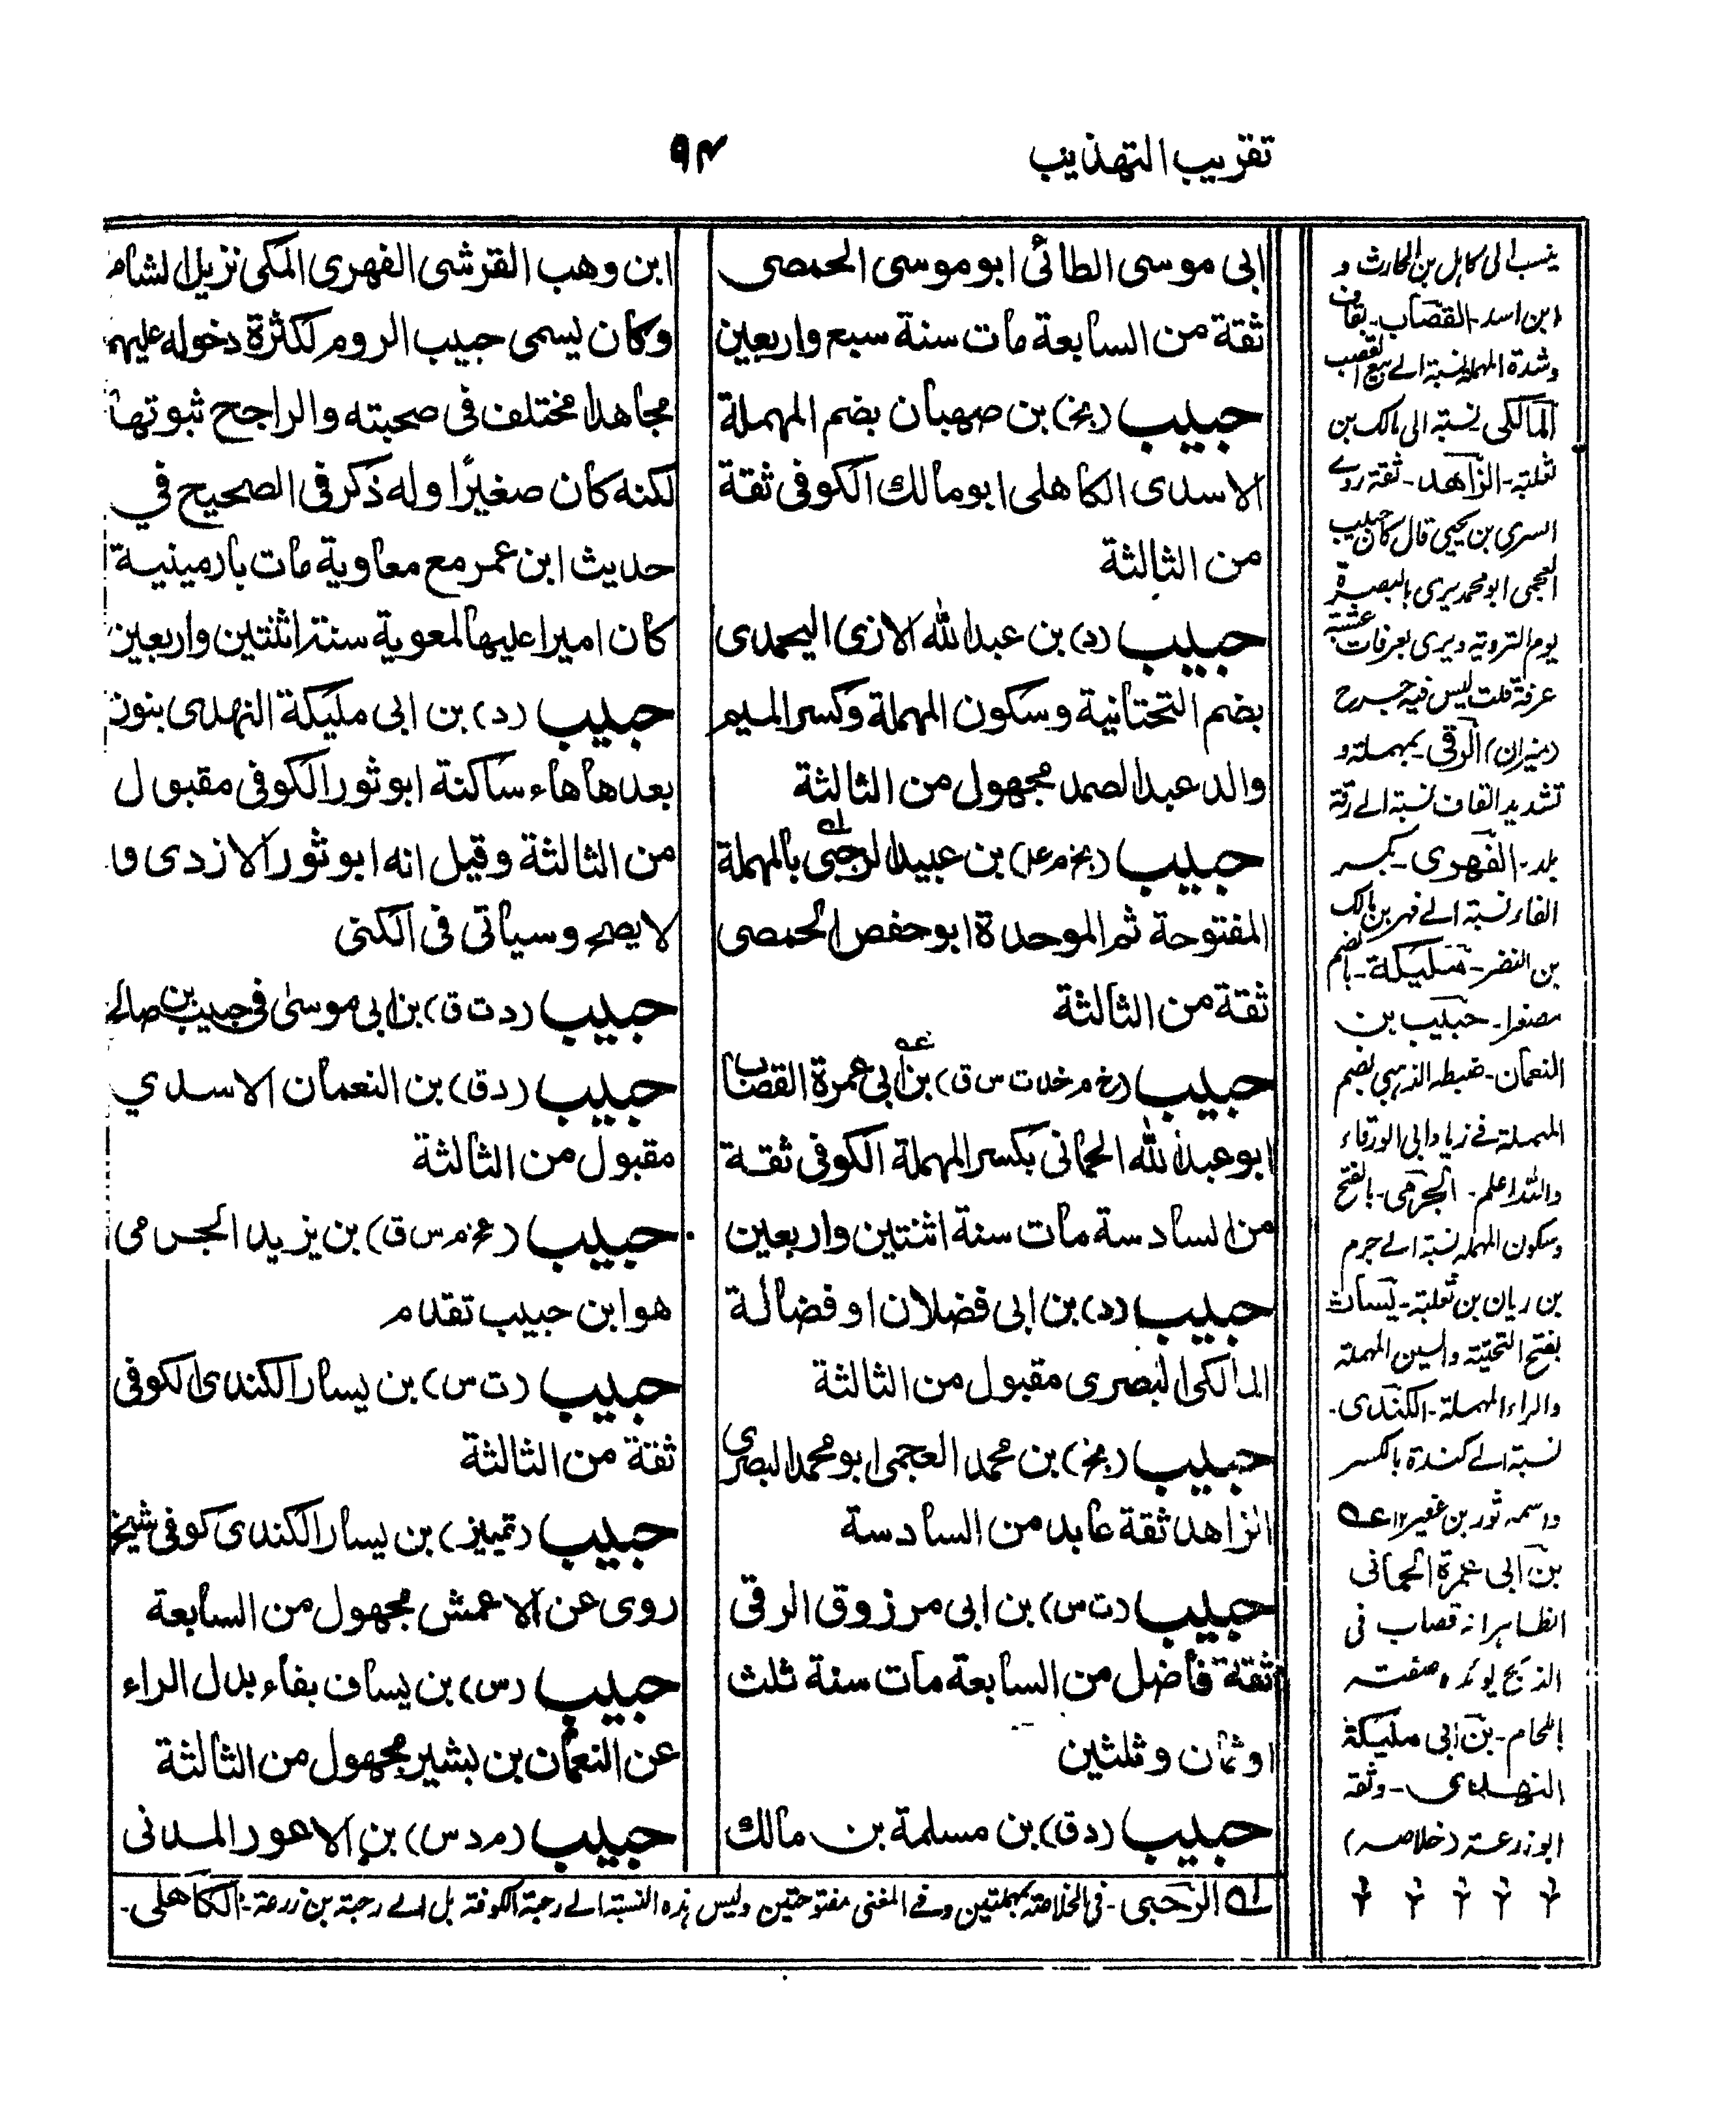 تقريب التهذيب
٩٤
ابى موسى الطائى ابو موسى الحمصى
ثقة من السابعة مات سنة سبع واربعين
حبيب (بخ) بن صهبان بضم المهملة
الاسدى الكاهلى ابو مالك الكوفى ثقة
من الثالثة
حبيب (د) بن عبد الله الازى اليحمدى
بضم التحتانية وسكون المهملة وكسر الميم
والد عبد الصمد مجهول من الثالثة
حبيب (بخ م عه) بن عبيد الرحبى بالمهملة
المفتوحة ثم الموحدة ابو حفص الحمصى
ثقة من الثالثة
حبيب (خ م خد ت س ق) بن ابى عمرة القصاب
ابو عبد الله الحمانى بكسر المهملة الكوفى ثقة
من السادسة مات سنة اثنتين واربعين
حبيب (د) بن ابى فضلان او فضالة
المالكى البصرى مقبول من الثالثة
حبيب (بخ) بن محمد العجمى ابو محمد البصرى
الزاهد ثقة عابد من السادسة
حبيب (ت س) بن ابى مرزوق الرقى
ثقة فاضل من السابعة مات سنة ثلث
او ثمان وثلثين
حبيب (د ق) بن مسلمة بن مالك
ابن وهب القرشى الفهرى المكى نزيل الشام
وكان يسمى حبيب الروم لكثرة دخوله عليهم
مجاهدا مختلف فى صحبته والراجح ثبوتها
لكنه كان صغيرًا وله ذكر فى الصحيح في
حديث ابن عمر مع معاوية مات بارمينية
كان اميرا عليها لمعوية سنة اثنتين واربعين
حبيب (د) بن ابى مليكة النهدى بنون
بعدها هاء ساكنة ابو ثور الكوفى مقبول
من الثالثة وقيل انه ابو ثور الازدى و
لا يصح وسياتى فى الكنى
حبيب (د ت ق) بن ابى موسىٰ فى حبيب بن صالح
حبيب (د ق) بن النعمان الاسدي
مقبول من الثالثة
حبيب (عخ م س ق) بن يزيد الجرمى
هو ابن حبيب تقدم
حبيب (ت س) بن يسار الكندى الكوفى
ثقة من الثالثة
حبيب (تمييز) بن يسار الكندى كوفى شيخ
روى عن الاعمش مجهول من السابعة
حبيب (س) بن يساف بفاء بدل الراء
عن النعمان بن بشير مجهول من الثالثة
حبيب (مد س) بن الاعور المدنى
له الرحبى - فى الخلاصة بمهملتين وفے المغنى مفتوحتين وليس هذه النسبة الے رحبة الكوفة بل الے رحبة بن زرعة - الكاهلى -
ينسب الى كاهل بن الحارث و
ابن اسد - القصاب - بقاف
وشدة المهملة نسبة الے بيع القصب
المالكى نسبة الى مالك بن
ثعلبة - الزاهد - ثقة روے
السري بن يحيى قال كان حبيب
العجمى ابو محمد يرى بالبصرة
يوم التروية ويرى بعرفات عشية
عرفة قلت ليس فيه جرح
(ميزان) الرقى - بمهملة و
تشديد القاف نسبة الے رقة
بلد - الفهرى - بكسر
الفاء نسبة الے فهر بن مالك
بن النضر - مليكة - بالضم
مصغرا - حبيب بن
النعمان - ضبطه الذهبى بضم
المهملة فے زياد ابى الورقاء
والله اعلم - الجرمى - بالفتح
وسكون المهملة نسبة الے جرم
بن ريان بن ثعلبة - يساف
بفتح التحتية والسين المهملة
والراء المهملة - الكندى -
نسبة الے كندة بالكسر
واسمه ثور بن عفير ١٢ عه
بن ابى عمرة الحمانى
الظاهر انه قصاب فى
الذبح يؤيده صفته
اللحام - بن ابى مليكة
النهدى - وثقه
ابو زرعة (خلاصه)